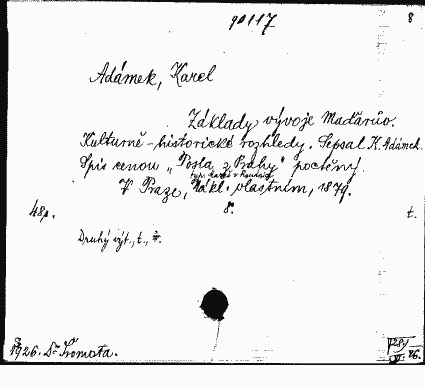 90117
8
Adámek, Karel
Základy vývoje Maďarův.
Kulturně-historické rozhledy. Sepsal K. Adámek.
Spis cenou „Posla z Prahy“ poctěný.
V Praze, Nákl. vlastním, 1879.
48s. 8°. t.
Druhý výt., t.,
1926. Dr Šromota.